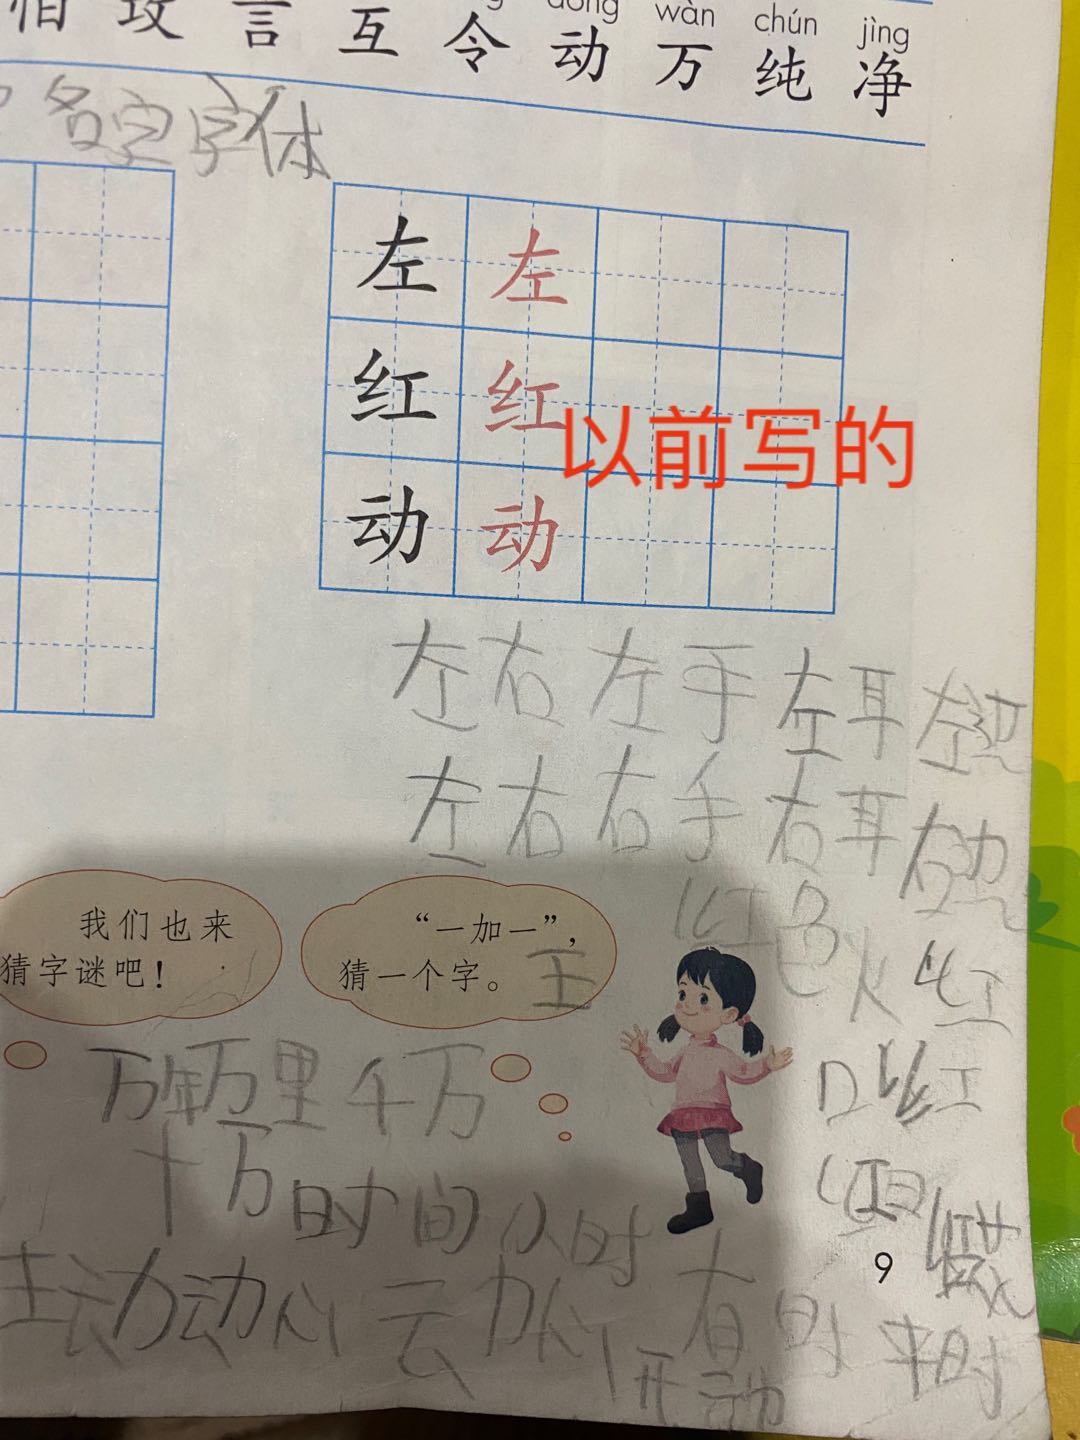 dòng wàn chún jìng
怕 玫 言 互 令 动 万 纯 净
名字 字体
左 左
红 红
以前写的
动 动
左右 左手 左耳 左边
左右 右手 右耳 右边
红色 火红
我们也来
猜字谜吧！
“一加一”，
猜一个字。王
口红
万年 万里 千万
十万 时间 小时
9
主动 动心 云 有时 来时
开动